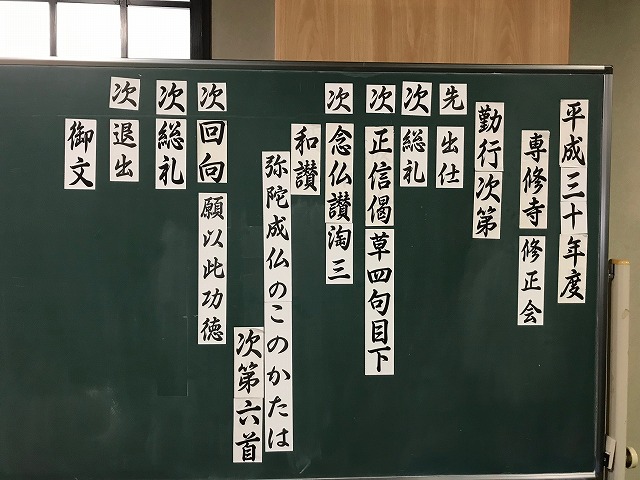 平成三十年度
専修寺 修正会
勤行次第
先 出仕
次 総礼
次 正信偈 草四句目下
次 念仏讃 淘三
和讃
弥陀成仏のこのかたは
次第六首
次 回向 願以此功徳
次 総礼
次 退出
御文